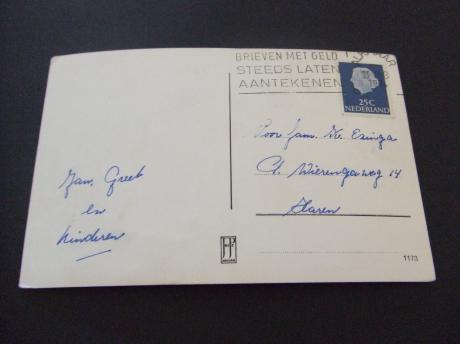 BRIEVEN MET GELD
STEEDS LATEN
AANTEKENEN
25C
NEDERLAND
Voor fam.
14
Haren
Jan, Greet
en
kinderen
1173